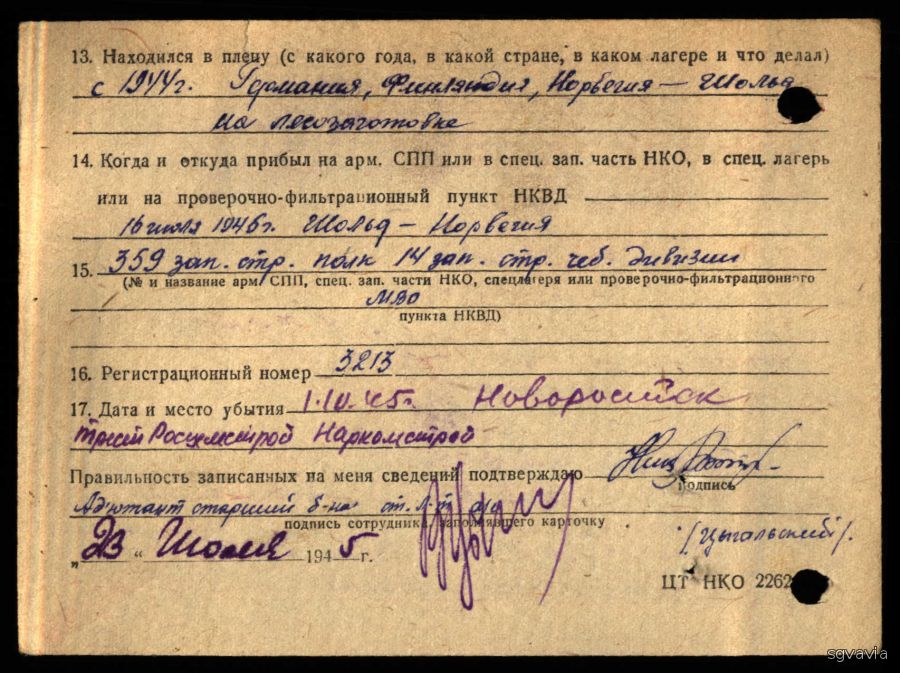 13. Находился в плену (с какого года, в какой стране, в каком лагере и что делал)
с 1944г. Германия, Финляндия, Норвегия — Шольд
на лесозаготовке
14. Когда и откуда прибыл на арм. СПП или в спец. зап. часть НКО, в спец. лагерь
или на проверочно-фильтрационный пункт НКВД
16 июля 1946г. Шольд — Норвегия
15. 359 зап. стр. полк 14 зап. стр. дивизии
(№ и название арм. СПП, спец. зап. части НКО, спецлагеря или проверочно-фильтрационного
МВО
пункта НКВД)
16. Регистрационный номер 3213
17. Дата и место убытия 1.10.45г. Новоросийск
трест Росцемстрой Наркомстрой
Правильность записанных на меня сведений подтверждаю
подпись
Адютант старший б-на ст. л-т а/с
подпись сотрудника, заполнявшего карточку
„23“ Июля 1945г.
/Цыгальский/.
ЦТ НКО 2262
sgvavia